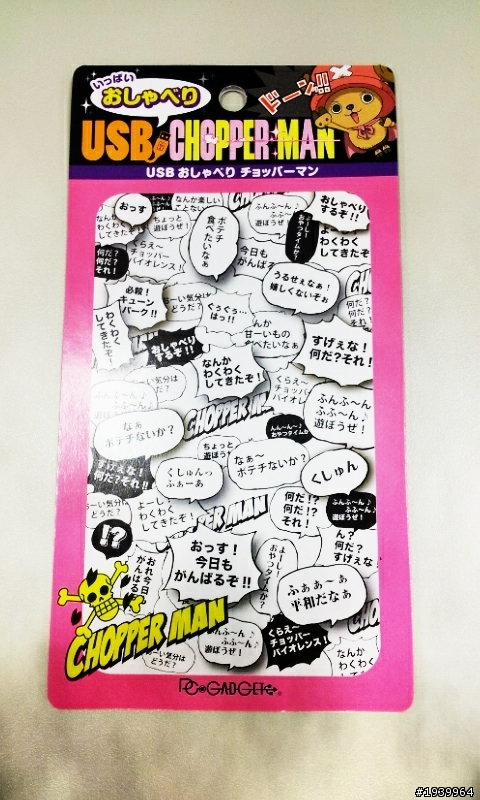 いっぱい
おしゃべり
ドーン!!
USB CHOPPER MAN
USB おしゃべり チョッパーマン
おっす
なんか楽しい
ちょっと
遊ぼうぜ!
ボテチ
食べたいなぁ
ふんふ〜ん
ふふ〜ん
遊ぼうぜ!
よーし!
おやつタイムか?
おしゃべり
するぞ!!
わくわく
してきたぞ!
わくわく
してきた
何だ?
何だ?
それ!
くらえ〜
チョッパー
バイオレンス!!
今日も
がんばる
うるせぇなぁ!
嬉しくないぞぉ
必殺!
キューン
パーク!!
ぐぅぐぅ…
はっ!!
わくわく
してきたぞ!
おしゃべり
するぞ!!
甘〜いもの
なんか
わくわく
してきたぞ!
すげぇな!
何だそれ!
くらえ〜
チョッパー
CHOPPER MAN
ふんふ〜ん
ふふ〜ん
遊ぼうぜ!
なぁ
ボテチないか?
ちょっと
遊ぼう
すげぇな!
何だそれ!!
くしゅんっ
ふぁーあ
なぁ〜
ボテチないか?
くしゅん
よーし!
わくわく
してきたぞ!
CHOPPER MAN
何だ!?
何だ!?
それ!
ふんふ〜ん♪
ふふ〜ん♪
遊ぼうぜ!
ん?
何だ?
すげぇな!
!?
おっす!
今日も
がんばるぞ!!
よーし!
おやつタイムか?
ふぁぁ〜ぁ
平和だなぁ
おれ今日
がんばる
CHOPPER MAN
ふふ〜ん♪
遊ぼうぜ!
くらえ〜
チョッパー
バイオレンス!
なんか
わくわく
PC GADGET
#1939964